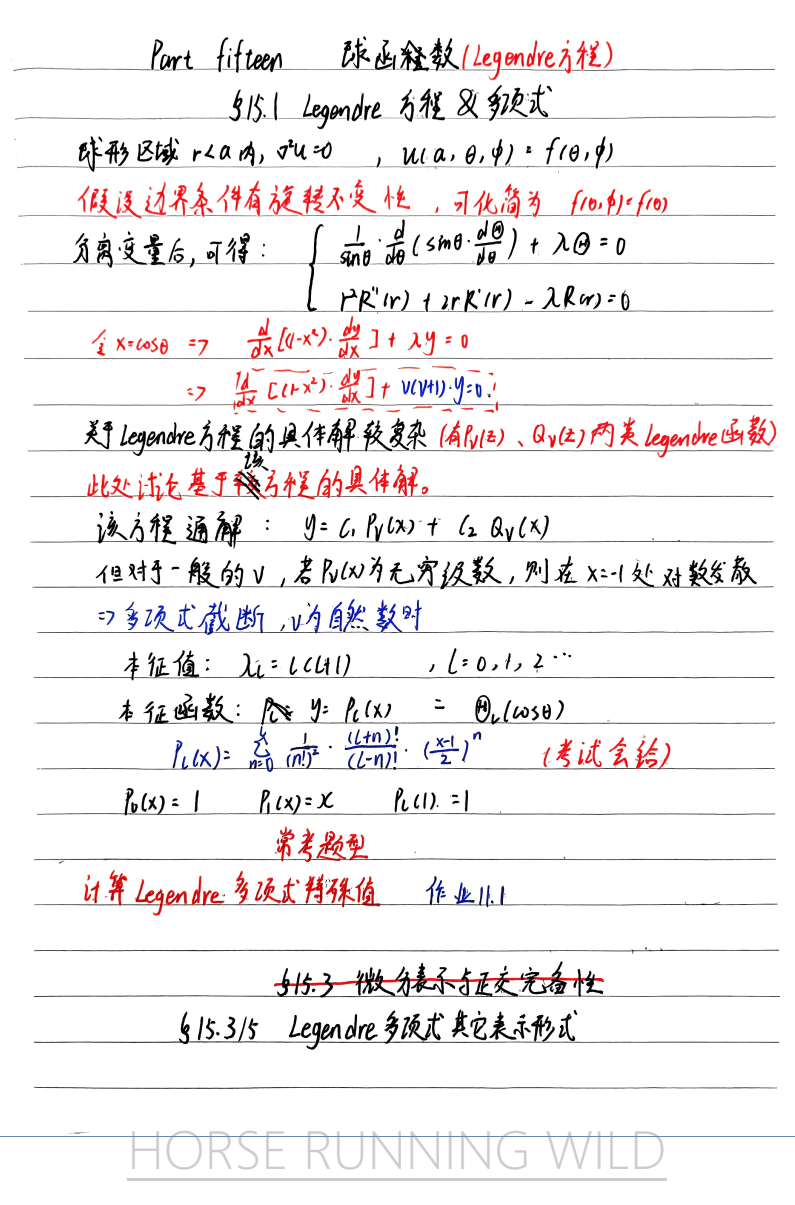 Part fifteen 球函数(Legendre方程)
§15.1 Legendre 方程 & 多项式
球形区域 r<a 内, ∇²u=0 , u(a, θ, φ) = f(θ, φ)
假设边界条件有旋转不变性 , 可化简为 f(θ,φ)=f(θ)
分离变量后, 可得: { 1/sinθ · d/dθ (sinθ · dΘ/dθ) + λΘ = 0
r²R''(r) + 2rR'(r) - λR(r) = 0
令 x=cosθ => d/dx [(1-x²) · dy/dx] + λy = 0
=> d/dx [(1-x²) · dy/dx] + ν(ν+1)·y=0.
关于 Legendre 方程的具体解较复杂 (有Pν(z)、Qν(z) 两类 Legendre函数)
此处讨论基于该方程的具体解。
该方程通解 : y = C₁ Pν(x) + C₂ Qν(x)
但对于一般的 ν , 若 Pν(x) 为无穷级数, 则在 x=-1 处对数发散
=> 多项式截断, ν为自然数时
本征值: λl = l(l+1) , l=0,1,2 ⋯
本征函数: y= Pl(x) = Θl(cosθ)
Pl(x) = Σ n=0 1/(n!)² · (l+n)!/(l-n)! · ((x-1)/2)ⁿ (考试会给)
P₀(x) = 1 P₁(x) = x Pl(1) = 1
常考题型
计算 Legendre 多项式特殊值 作业11.1
§15.3 微分表示与正交完备性
§15.3/5 Legendre 多项式其它表示形式
HORSE RUNNING WILD